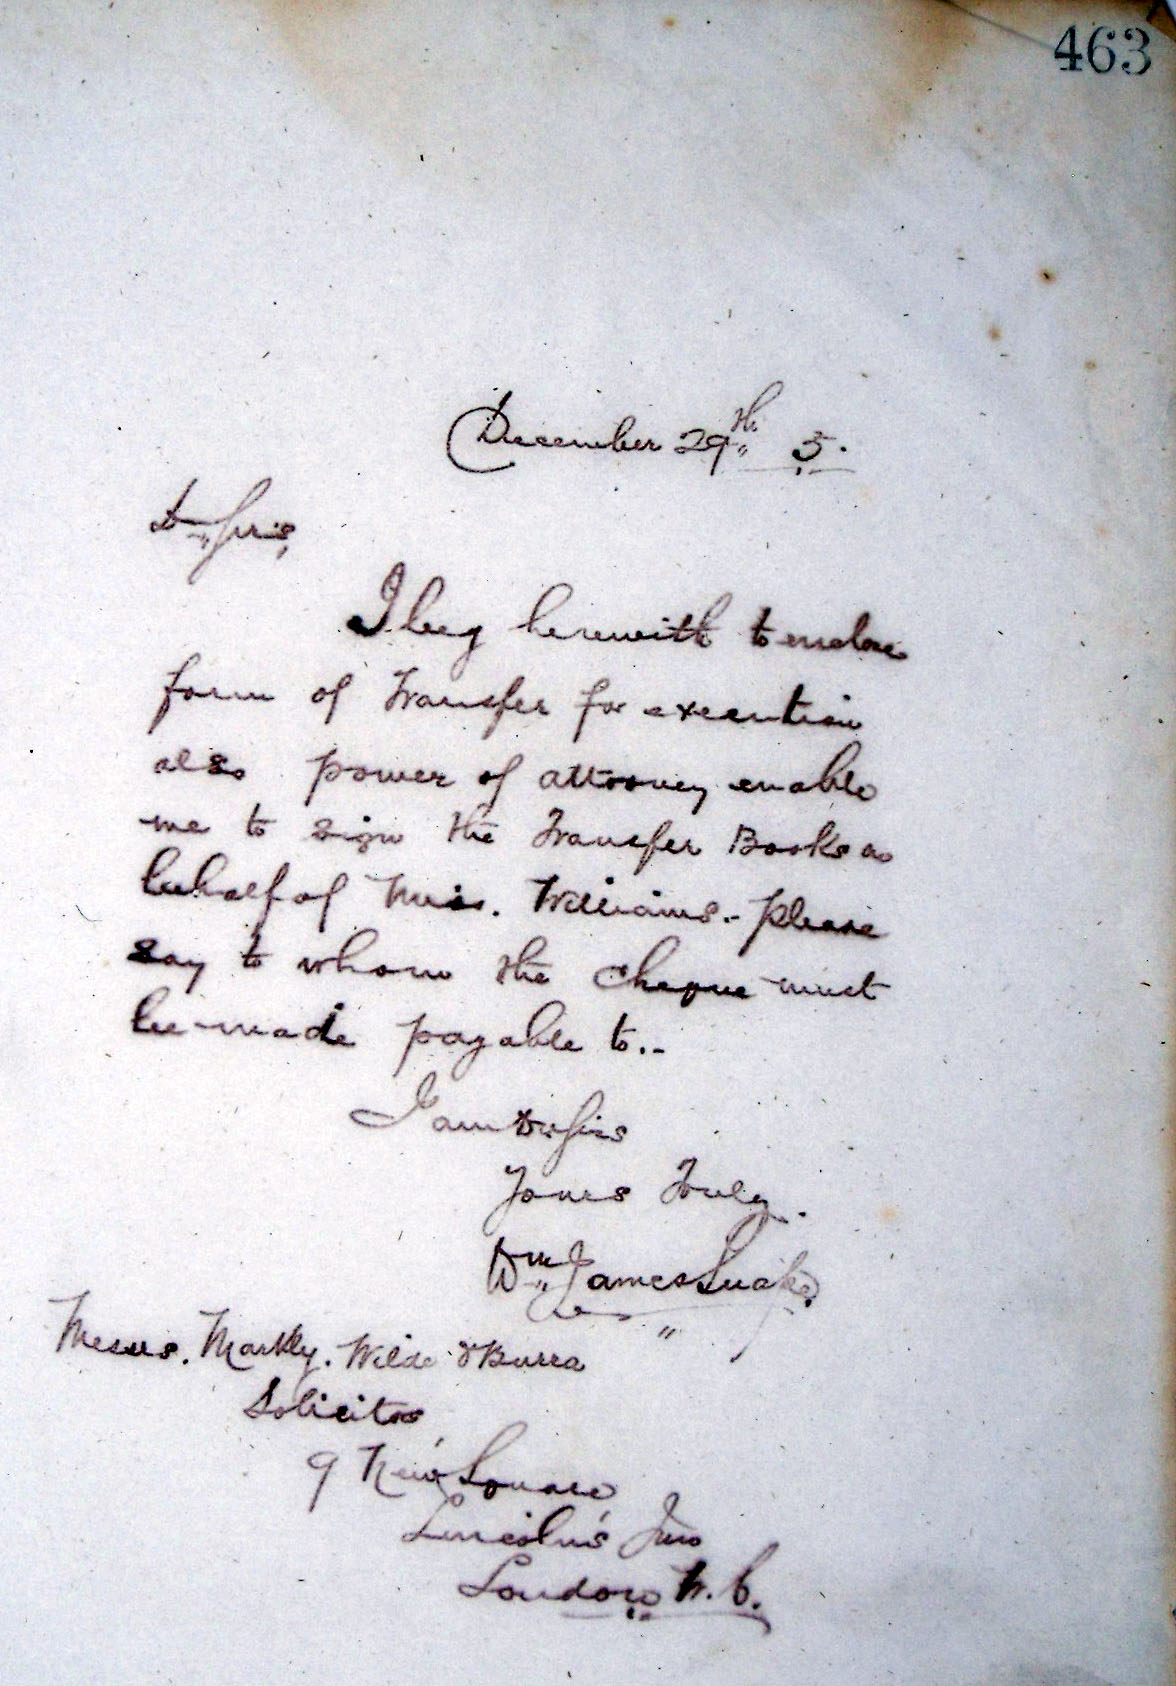 463
December 29th 5.
Dr Sirs,
I beg herewith to enclose
form of Transfer for execution
also power of attorney enable
me to sign the Transfer Books on
behalf of Miss. Williams. Please
say to whom the cheque must
be made payable to..
I am Dr Sirs
Yours Truly.
Wm James
Messrs. Markby. Wilde & Burra
Solicitors
9 New Square
Lincoln's Inn
London W.C.